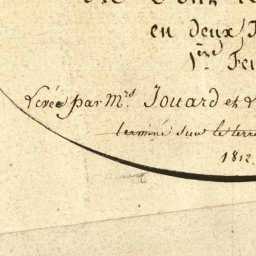 en deux
1ère Feu
Levée par Mrs Jouard et
terminé sur le terre
1812